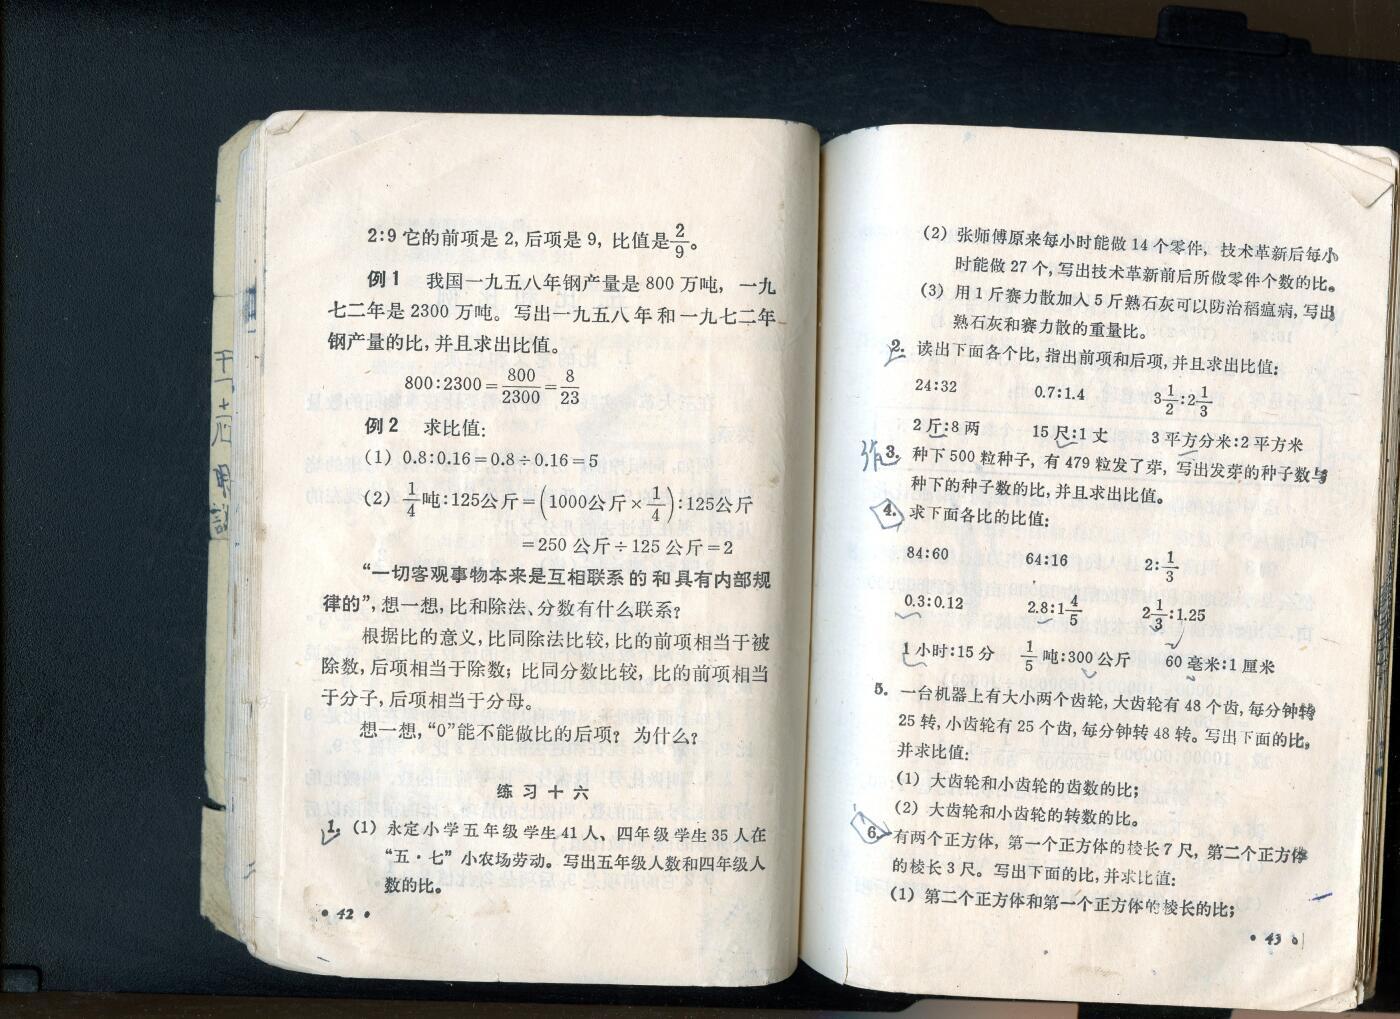 2:9它的前项是2,后项是9,比值是2/9。
例1 我国一九五八年钢产量是800万吨,一九
七二年是2300万吨。写出一九五八年和一九七二年
钢产量的比,并且求出比值。
800:2300=800/2300=8/23
例2 求比值:
(1) 0.8:0.16=0.8÷0.16=5
(2) 1/4吨:125公斤=(1000公斤×1/4):125公斤
=250公斤÷125公斤=2
“一切客观事物本来是互相联系的和具有内部规
律的”,想一想,比和除法、分数有什么联系?
根据比的意义,比同除法比较,比的前项相当于被
除数,后项相当于除数;比同分数比较,比的前项相当
于分子,后项相当于分母。
想一想,“0”能不能做比的后项?为什么?
练习十六
1. (1) 永定小学五年级学生41人,四年级学生35人在
“五·七”小农场劳动。写出五年级人数和四年级人
数的比。
• 42 •
(2) 张师傅原来每小时能做14个零件,技术革新后每小
时能做27个,写出技术革新前后所做零件个数的比。
(3) 用1斤赛力散加入5斤熟石灰可以防治稻瘟病,写出
熟石灰和赛力散的重量比。
2. 读出下面各个比,指出前项和后项,并且求出比值:
24:32 0.7:1.4 3 1/2:2 1/3
2斤:8两 15尺:1丈 3平方分米:2平方米
3. 种下500粒种子,有479粒发了芽,写出发芽的种子数与
种下的种子数的比,并且求出比值。
4. 求下面各比的比值:
84:60 64:16 2:1/3
0.3:0.12 2.8:1 4/5 2 1/3:1.25
1小时:15分 1/5吨:300公斤 60毫米:1厘米
5. 一台机器上有大小两个齿轮,大齿轮有48个齿,每分钟转
25转,小齿轮有25个齿,每分钟转48转。写出下面的比,
并求比值:
(1) 大齿轮和小齿轮的齿数的比;
(2) 大齿轮和小齿轮的转数的比。
6. 有两个正方体,第一个正方体的棱长7尺,第二个正方体
的棱长3尺。写出下面的比,并求比值:
(1) 第二个正方体和第一个正方体的棱长的比;
• 43 •